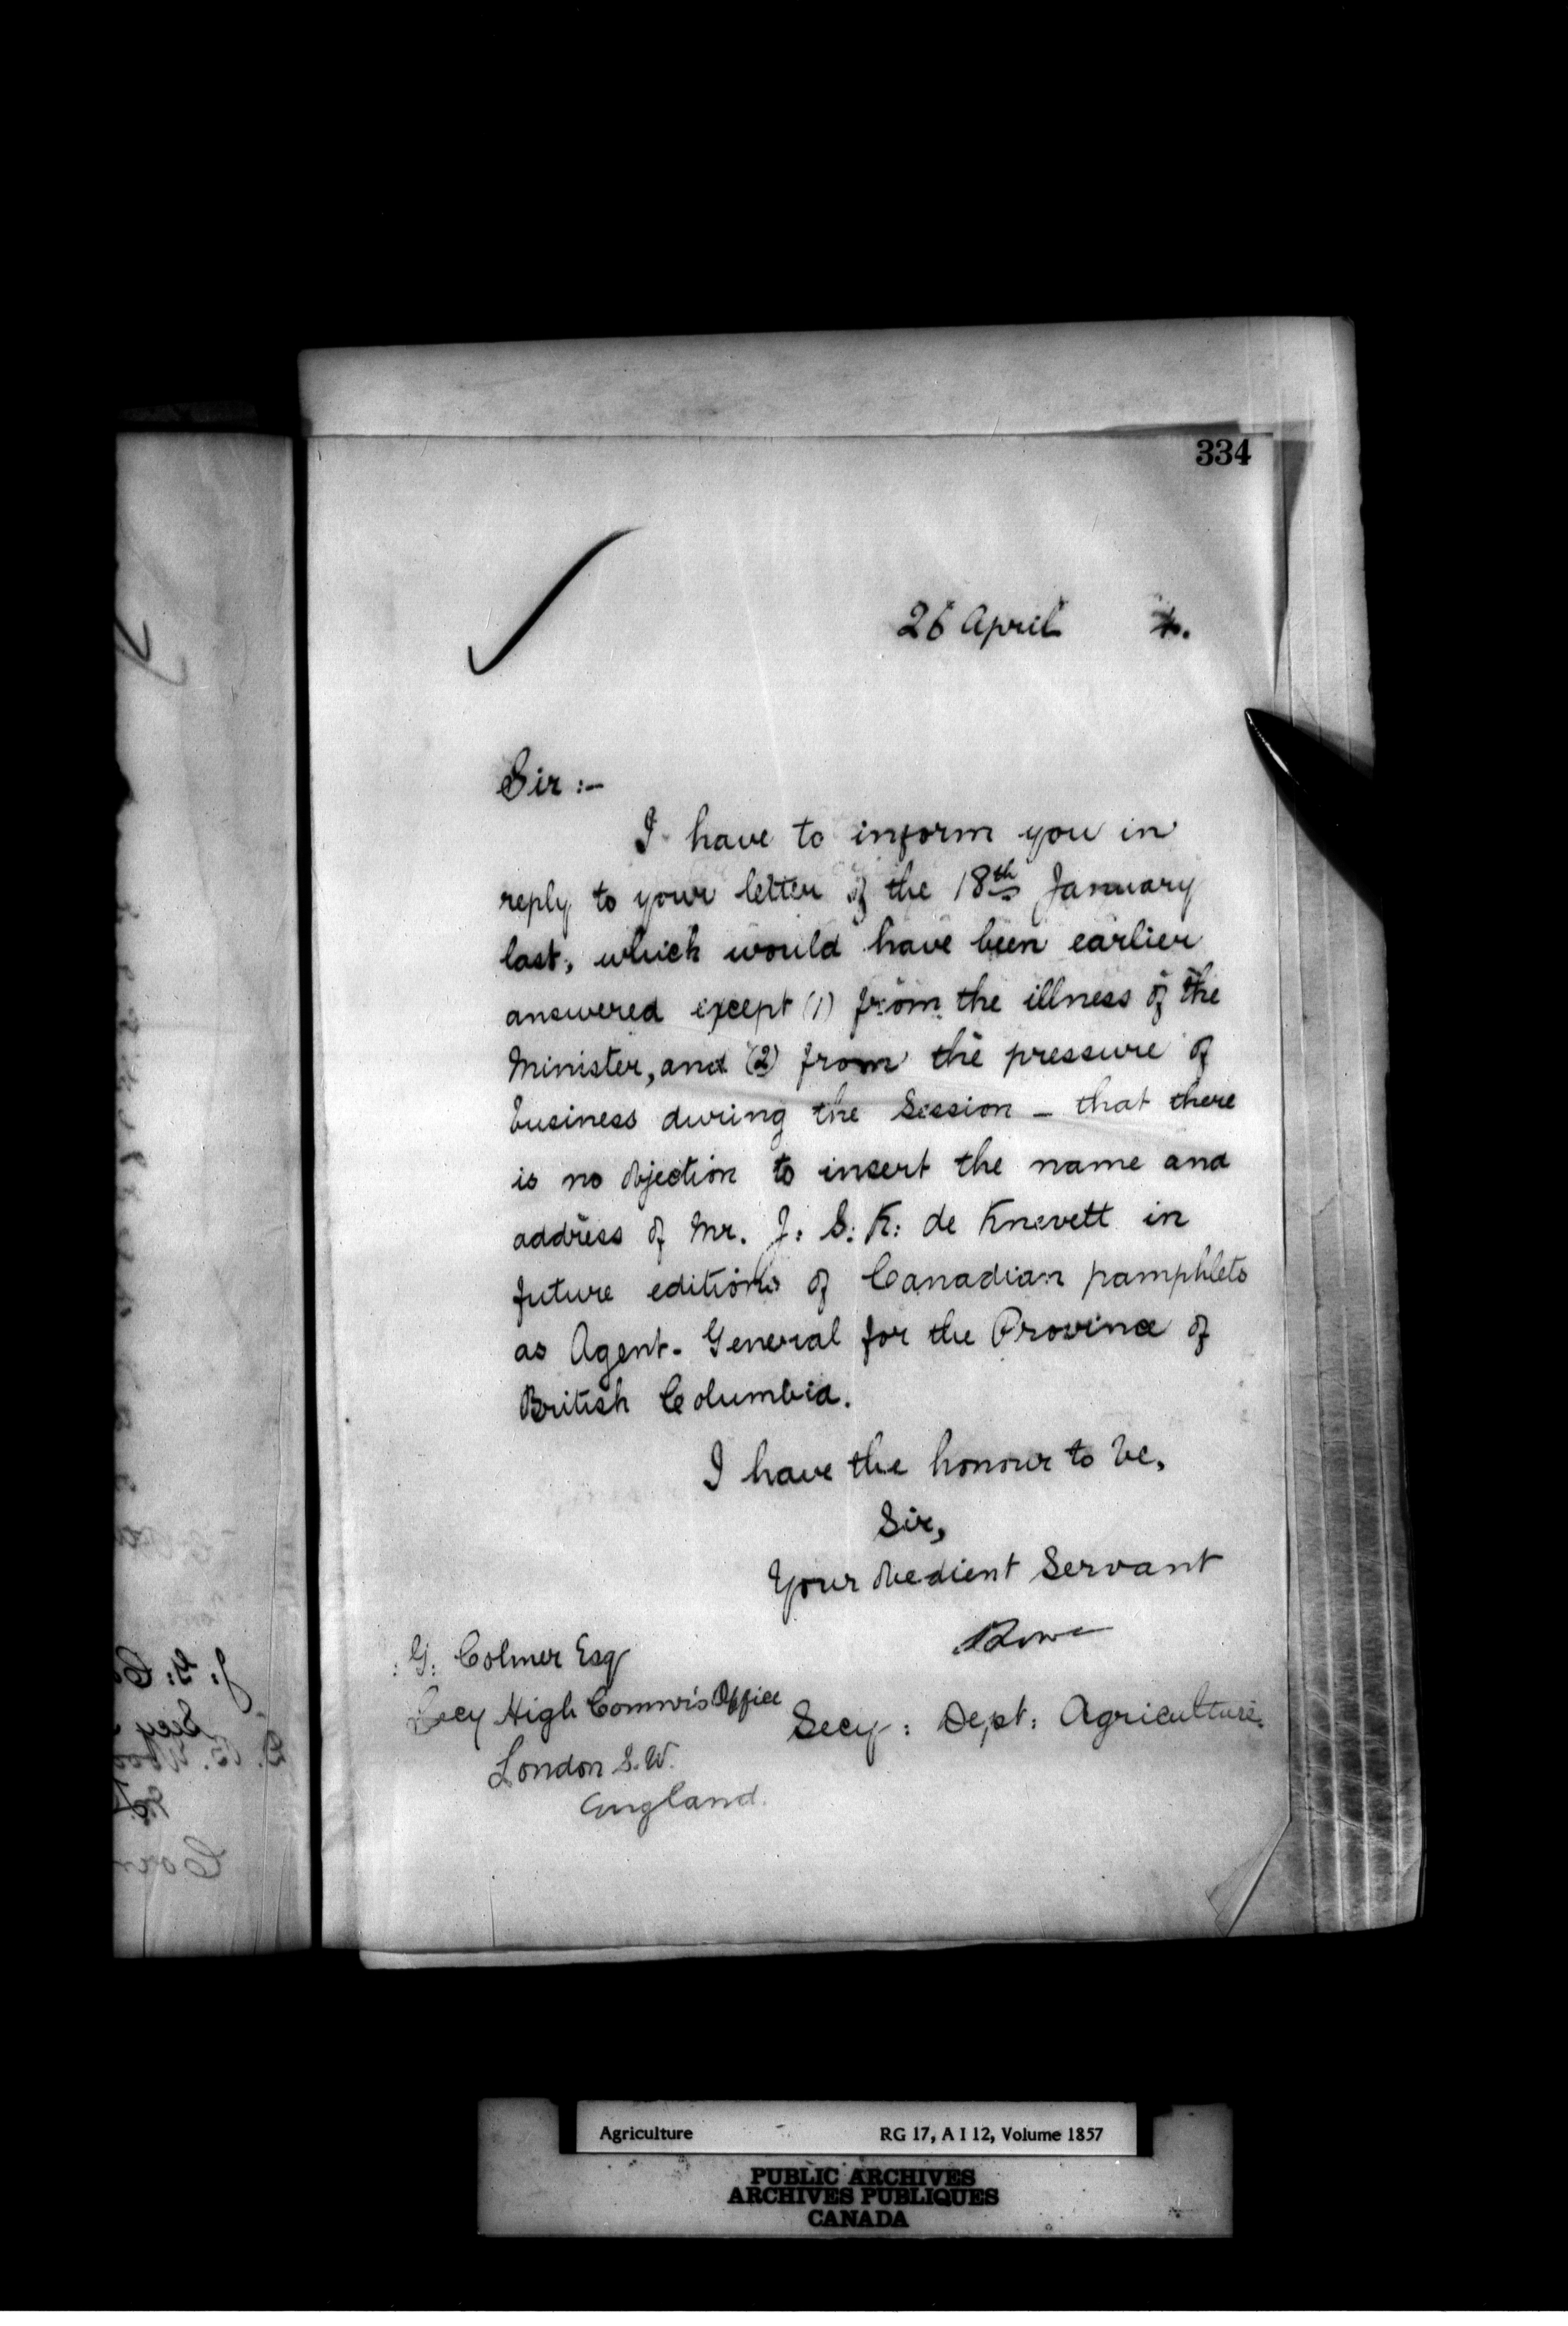 334
26 April 4.
Sir :-
I have to inform you in
reply to your letter of the 18th January
last, which would have been earlier
answered except (1) from the illness of the
Minister, and (2) from the pressure of
business during the Session - that there
is no objection to insert the name and
address of Mr. J: S: K: de Knevett in
future editions of Canadian pamphlets
as Agent-General for the Province of
British Columbia.
I have the honour to be,
Sir,
Your obedient Servant
: G: Colmer Esq
Secy High Commr's Office
Secy: Dept: Agriculture.
London S.W.
England.
Agriculture RG 17, A I 12, Volume 1857
PUBLIC ARCHIVES
ARCHIVES PUBLIQUES
CANADA